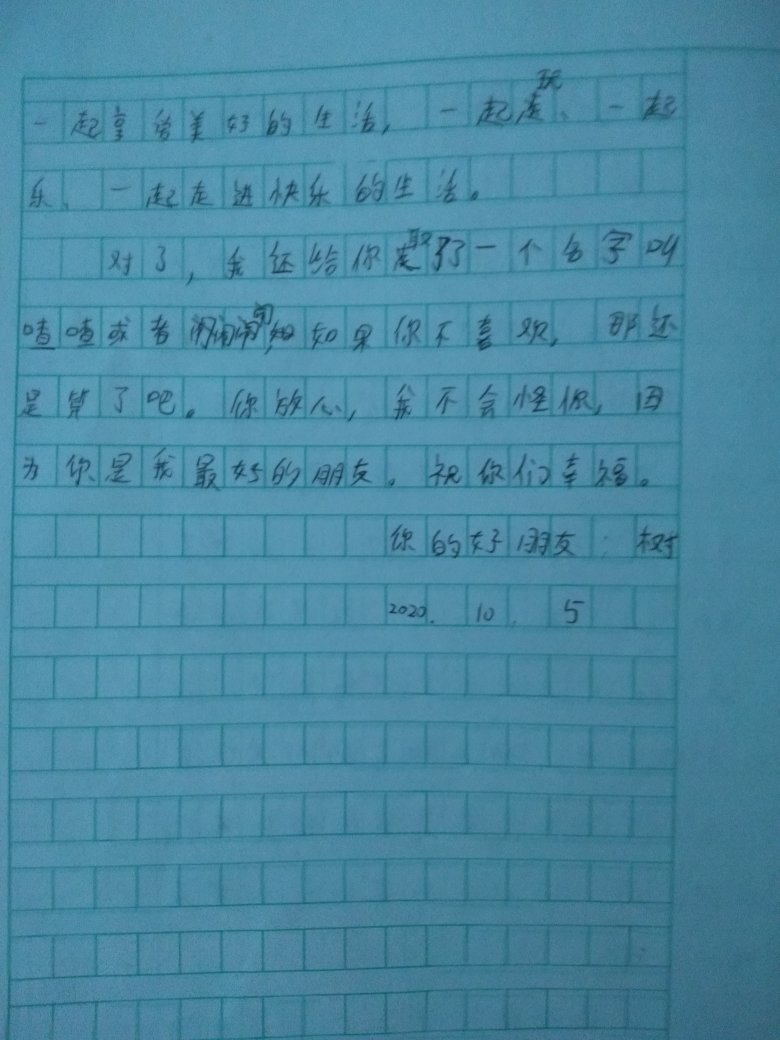 一起享受美好的生活，一起玩、一起
乐、一起走进快乐的生活。
对了，我还给你取了一个名字叫
喳喳或者闹闹，如果你不喜欢，那还
是算了吧。你放心，我不会怪你，因
为你是我最好的朋友。祝你们幸福。
你的好朋友：树
2020. 10. 5